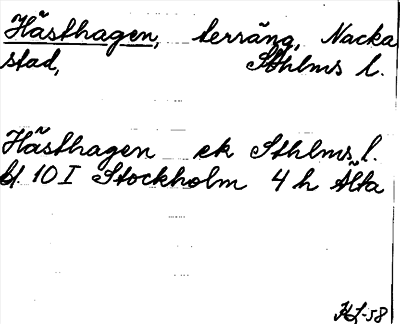 Hästhagen, terräng, Nacka
stad, Sthlms l.
Hästhagen ek Sthlms l.
bl. 10 I Stockholm 4 h Älta